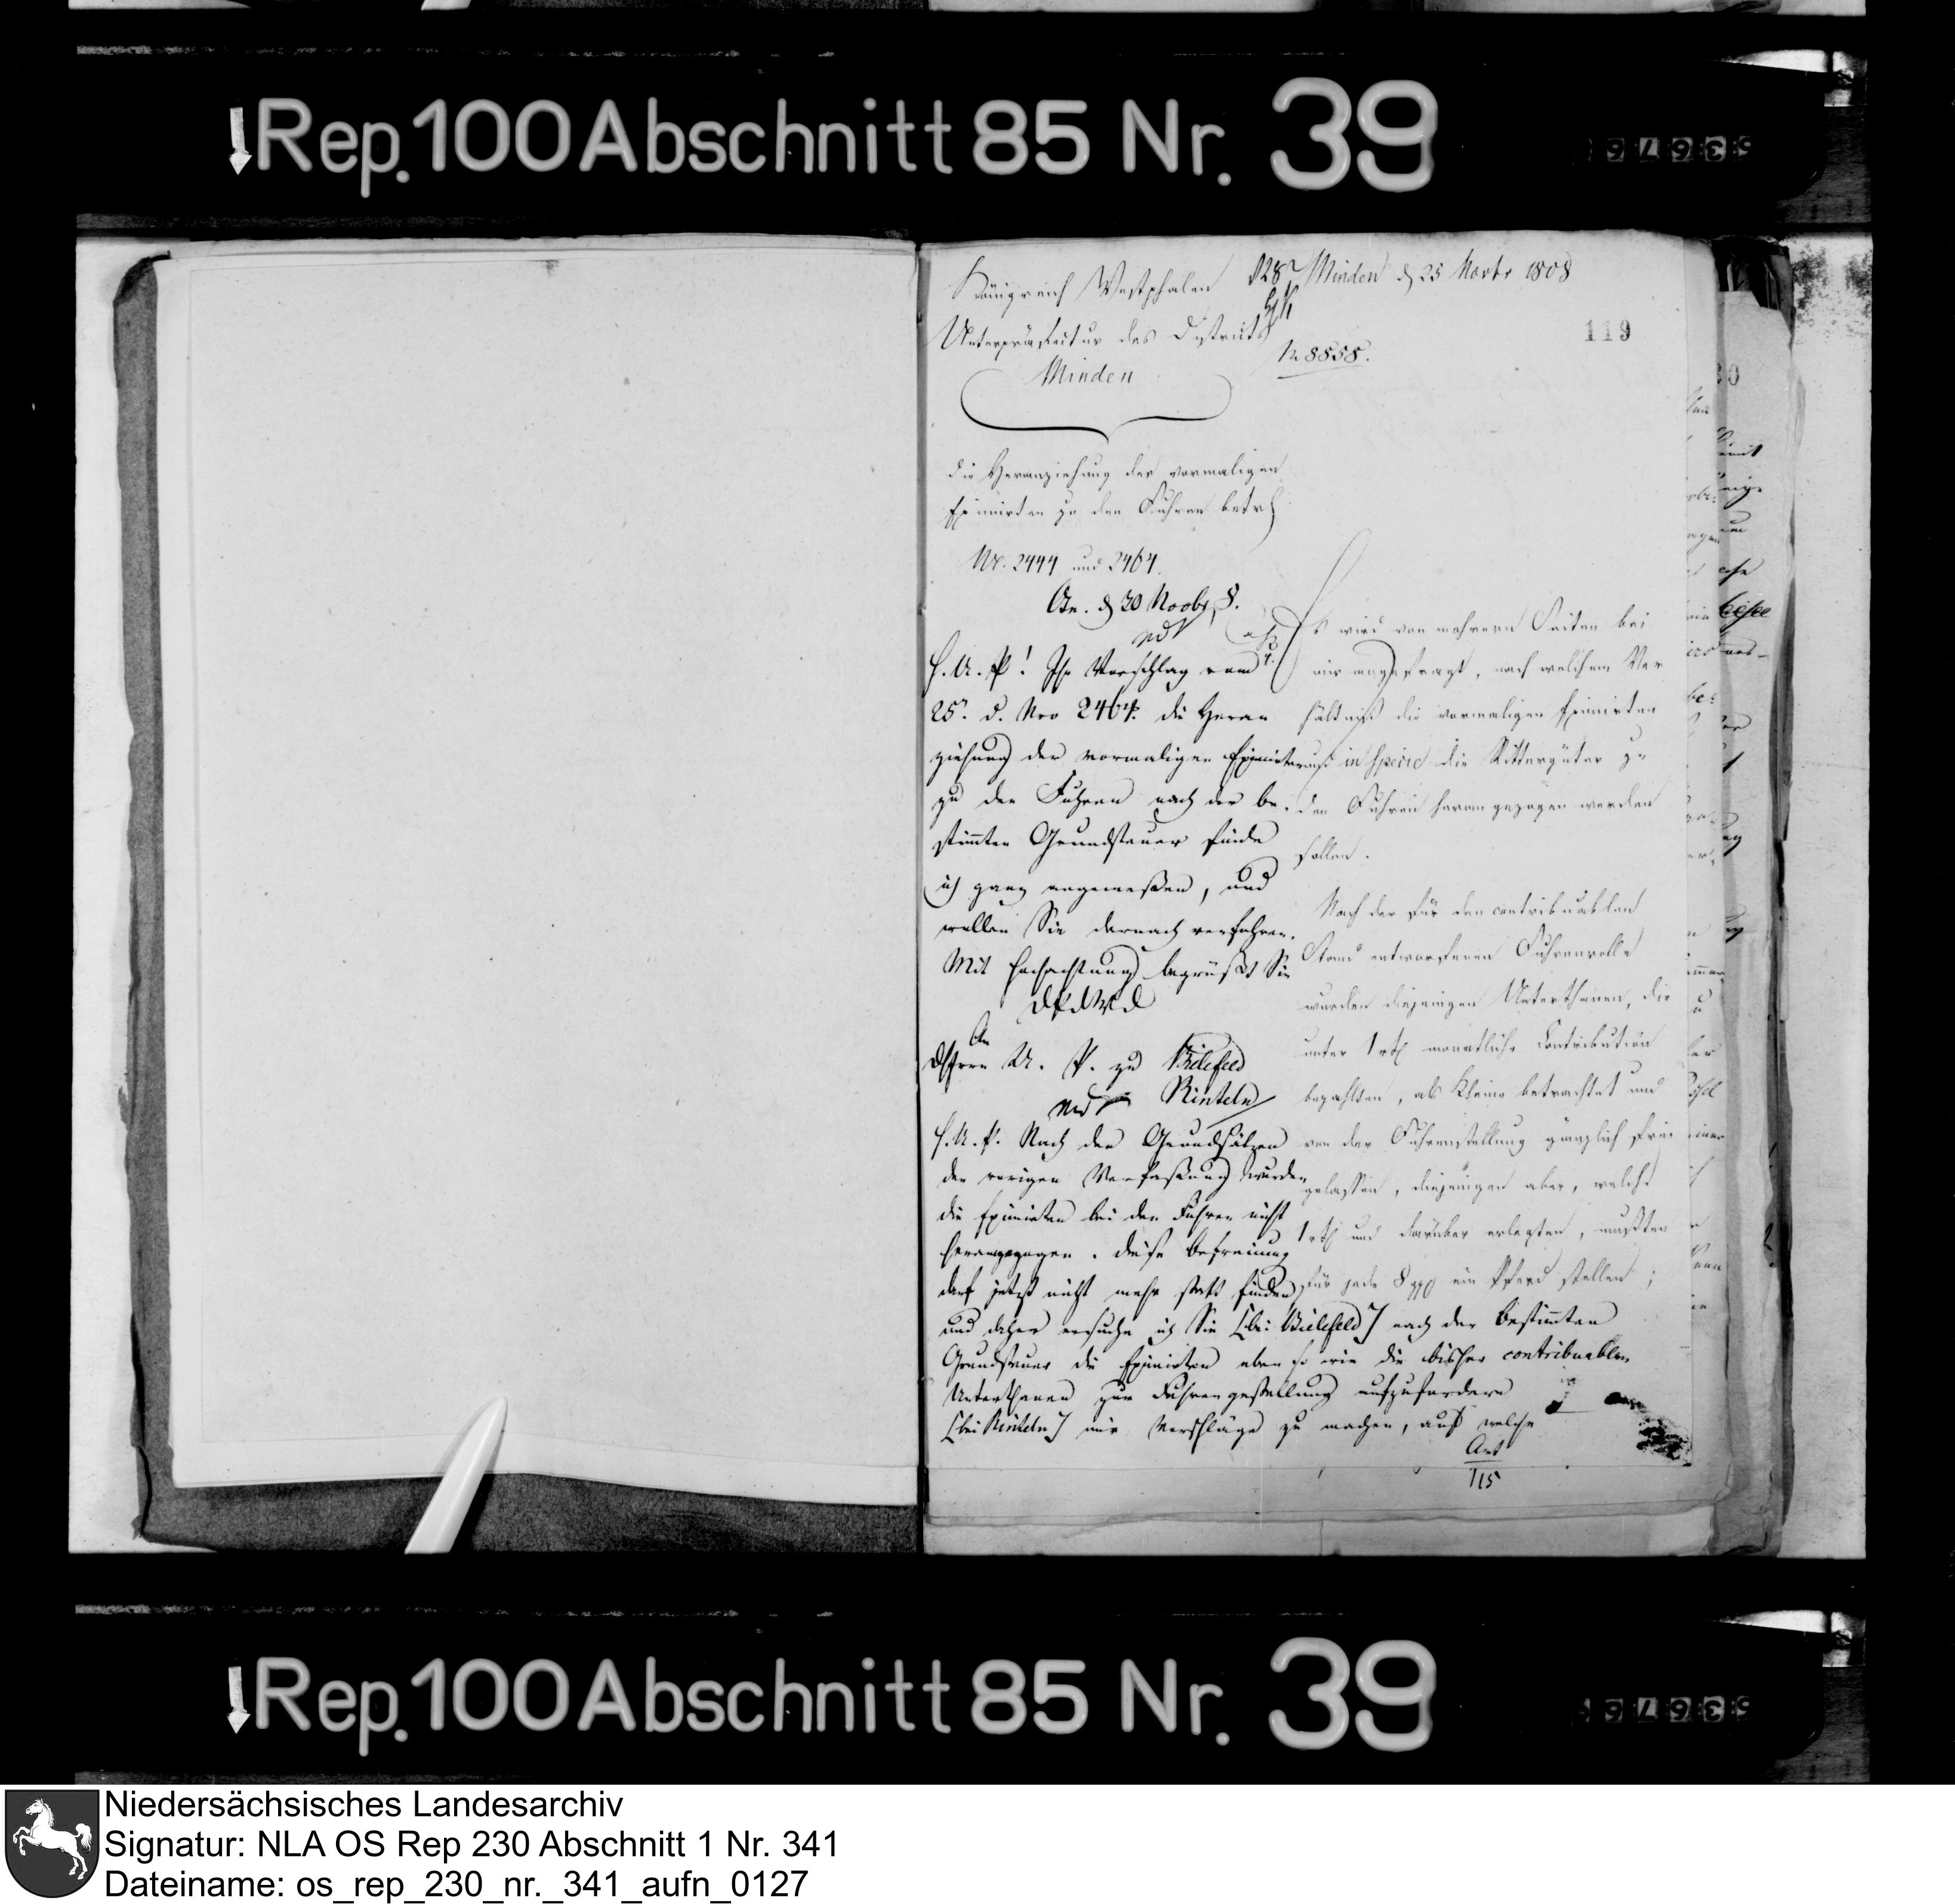 Rep. 100 Abschnitt 85 Nr. 39
Königreich Westphalen
Unterpräfektur des Districts
Minden
Minden d 25 Novbr 1808
N 8858.
119
die Heranziehung der vormaligen
Eximirten zu den Fuhren betr
Nr. 2444 und 2464.
Cn. d 30 Novbr 8.
H. U. P! Ihr Vorschlag vom
25n d. Nro 2464. die Heran
ziehung der vormaligen Eximirten
zu den Fuhren nach der be-
stimmten Grundsteuer finde
ich ganz angemeßen, und
wollen Sie darnach verfahren.
Mit Hochachtung begrüßt Sie
An
d Herrn U. P. zu Bielefeld
Rinteln
H. U. P. Nach den Grundsätzen
der vorigen Verfaßung wurden
die Eximirten bei den Fuhren nicht
herangezogen. Diese Befreiung
darf jetzt nicht mehr statt finden,
und daher ersuche ich Sie [bei Bielefeld] nach der bestimmten
Grundsteuer die Eximirten eben so wie die bisher contribuablen
Unterthanen zur Fuhrengestellung aufzufordern
[bei Rinteln] mir Vorschläge zu machen, auf welche
Art
715
Es wird von mehrern Seiten bei
mir angefragt, nach welchem Ver
hältniß die vormaligen Eximirten
und in specie die Rittergüter zu
den Fuhren herangezogen werden
sollen.
Nach der für den contribuablen
Stand entworfenen Fuhrenrolle
wurden diejenigen Unterthanen, die
unter 1 rth monatliche Contribution
bezahlten, als kleine betrachtet und
von der Fuhrenstellung gänzlich frei
gelassen, diejenigen aber, welche
1 rth und darüber erlegten, mußten
für jede 8 ggl ein Pferd stellen;
Rep. 100 Abschnitt 85 Nr. 39
Niedersächsisches Landesarchiv
Signatur: NLA OS Rep 230 Abschnitt 1 Nr. 341
Dateiname: os_rep_230_nr._341_aufn_0127